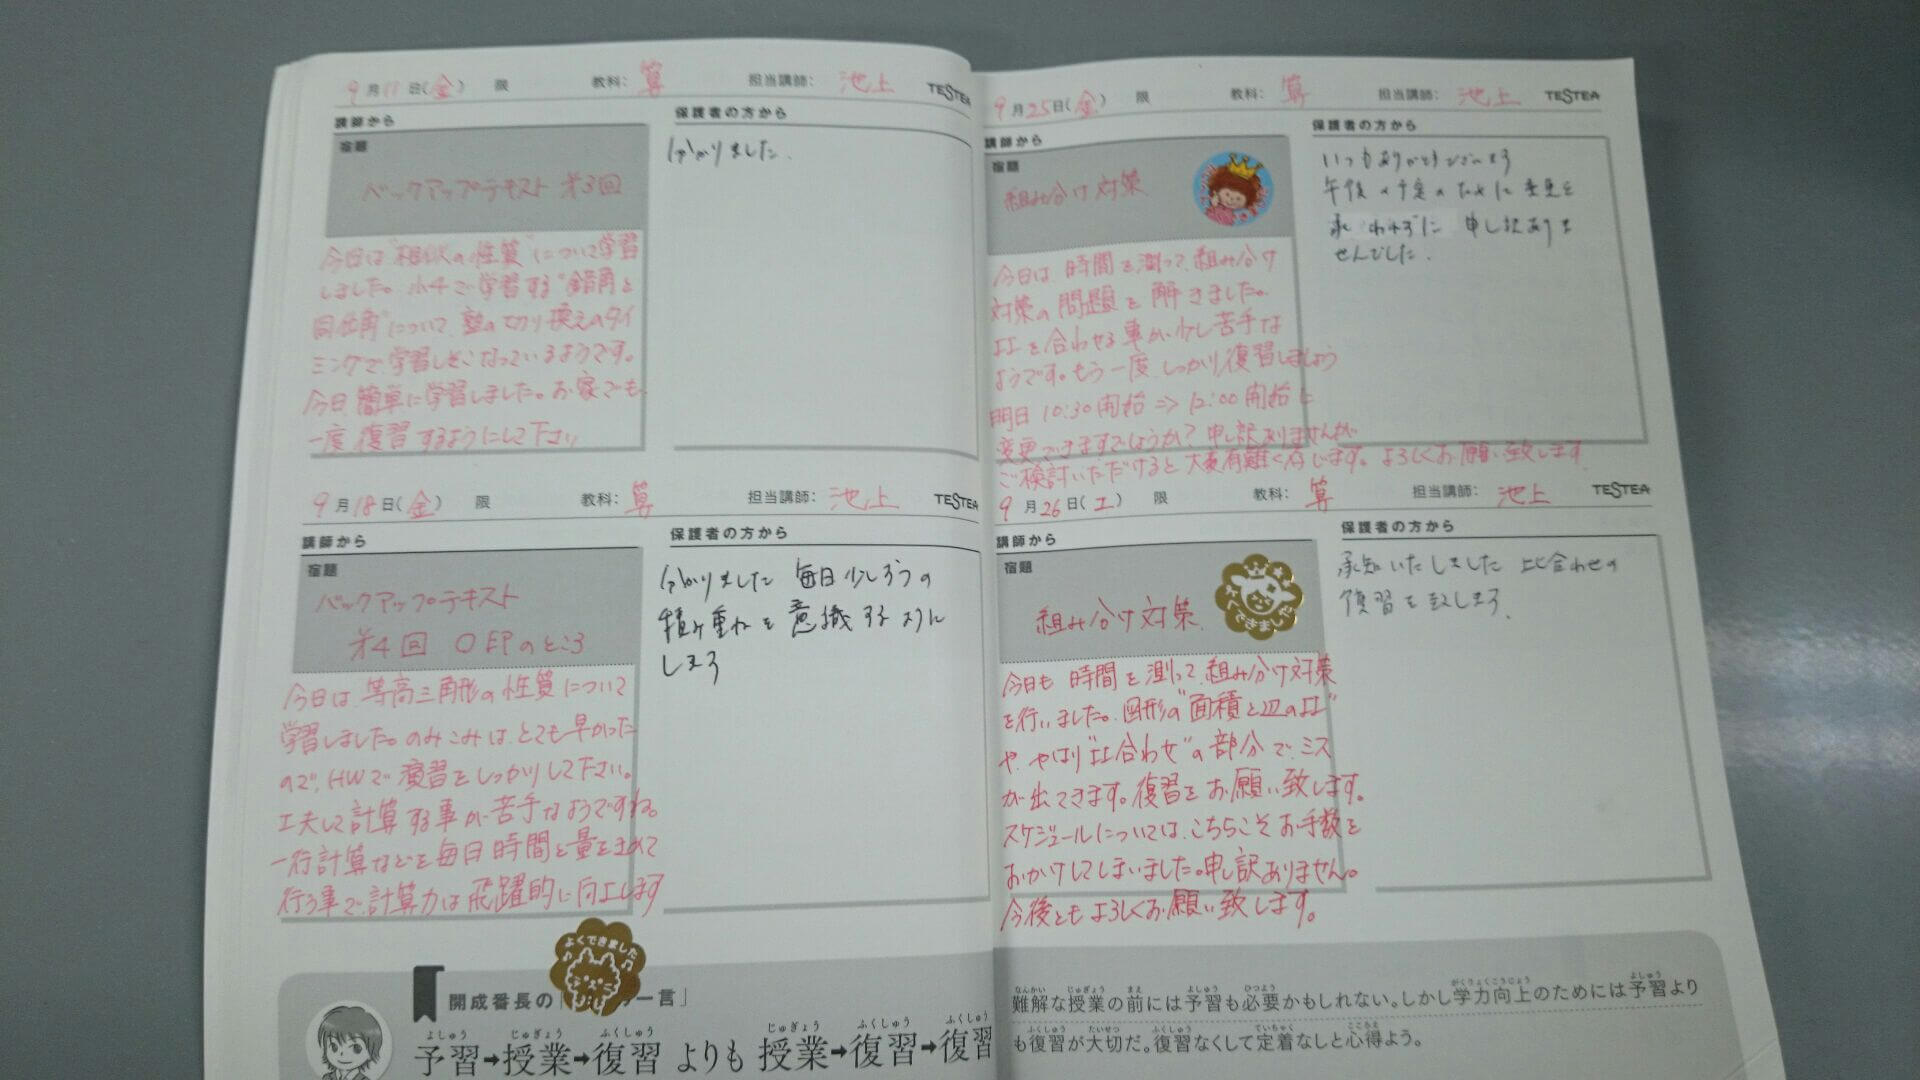 9月11日(金) 限 教科: 算 担当講師: 池上 TESTEA
講師から
宿題
バックアップテキスト 第3回
今日は"相似の性質"について学習
しました。小4で学習する"錯角と
同位角"について、塾の切り換えのタイ
ミングで学習しそこなっているようです。
今日、簡単に学習しました。お家でも
一度復習するようにして下さい
保護者の方から
分かりました.
9月18日(金) 限 教科: 算 担当講師: 池上 TESTEA
講師から
宿題
バックアップテキスト
第4回 ○印のところ
今日は、等高三角形の性質について
学習しました。のみこみは、とても早かった
ので、HWで演習をしっかりして下さい。
工夫して計算する事が苦手なようですね。
一行計算などを毎日時間と量を決めて
行う事で、計算力は飛躍的に向上します
保護者の方から
分かりました 毎日少しづつの
積み重ねを意識するように
します
よくできました
開成番長の「 一言」
予習➡授業➡復習 よりも 授業➡復習➡復習
よしゅう じゅぎょう ふくしゅう じゅぎょう ふくしゅう ふくしゅう
9月25日(金) 限 教科: 算 担当講師: 池上 TESTEA
講師から
宿題
組み分け対策
今日は、時間を測って、組み分け
対策の問題を解きました。
比を合わせる事が少し苦手な
ようです。もう一度、しっかり復習しましょう
明日 10:30開始 ⇒ 12:00開始に
変更できますでしょうか? 申し訳ありませんが
ご検討いただけると大変有難く存じます。よろしくお願い致します
保護者の方から
いつもありがとうございます
午後の予定のために変更を
申し訳ありま
せんでした.
9月26日(土) 限 教科: 算 担当講師: 池上 TESTEA
講師から
宿題
組み分け対策.
よくできました
今日も時間を測って、組み分け対策
を行いました。図形の"面積と辺の比"
や、やはり"比合わせ"の部分で、ミス
が出てきます。復習をお願い致します。
スケジュールについては、こちらこそお手数を
おかけしてしまいました。申し訳ありません。
今後ともよろしくお願い致します。
保護者の方から
承知いたしました 比合わせの
復習を致します.
難解な授業の前には予習も必要かもしれない。しかし学力向上のためには予習より
なんかい じゅぎょう まえ よしゅう ひつよう がくりょくこうじょう よしゅう
も復習が大切だ。復習なくして定着なしと心得よう。
ふくしゅう たいせつ ふくしゅう ていちゃく こころえ